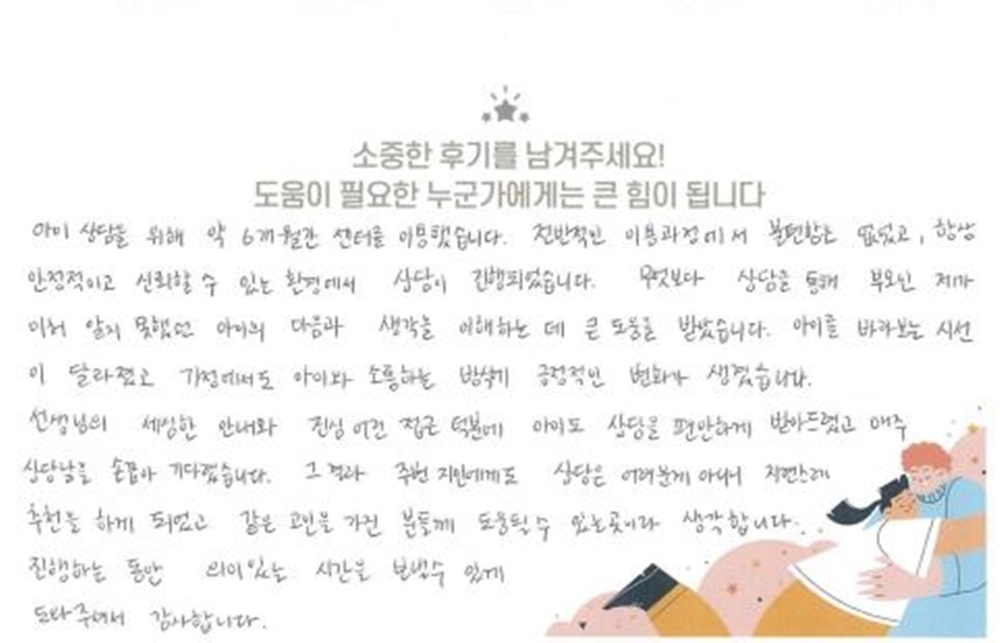 소중한 후기를 남겨주세요!
도움이 필요한 누군가에게는 큰 힘이 됩니다
아이 상담을 위해 약 6개월간 센터를 이용했습니다. 전반적인 이용과정에서 불편함은 없었고, 항상
안정적이고 신뢰할 수 있는 환경에서 상담이 진행되었습니다. 무엇보다 상담을 통해 부모인 제가
미처 알지 못했던 아이의 마음과 생각을 이해하는 데 큰 도움을 받았습니다. 아이를 바라보는 시선
이 달라졌고 가정에서도 아이와 소통하는 방식에 긍정적인 변화가 생겼습니다.
선생님의 세심한 안내와 진심 어린 접근 덕분에 아이도 상담을 편안하게 받아드렸고 매주
상담날을 손꼽아 기다렸습니다. 그 결과 주변 지인에게도 상담은 어려운게 아니니 자연스레
추천을 하게 되었고 같은 고민을 가진 분들께 도움될 수 있는곳이라 생각합니다.
진행하는 동안 의미있는 시간을 보낼수 있게
도와주셔서 감사합니다.